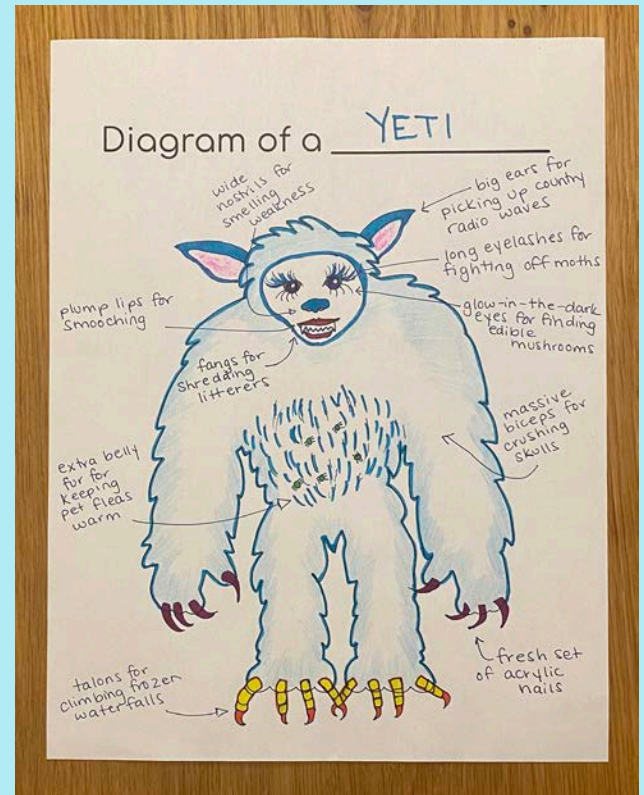 Diagram of a YETI
wide
nostrils for
smelling
weakness
big ears for
picking up country
radio waves
long eyelashes for
fighting off moths
plump lips for
smooching
glow-in-the-dark
eyes for finding
edible
mushrooms
fangs for
shredding
litterers
massive
biceps for
crushing
skulls
extra belly
fur for
keeping
pet fleas
warm
fresh set
of acrylic
nails
talons for
climbing frozen
waterfalls